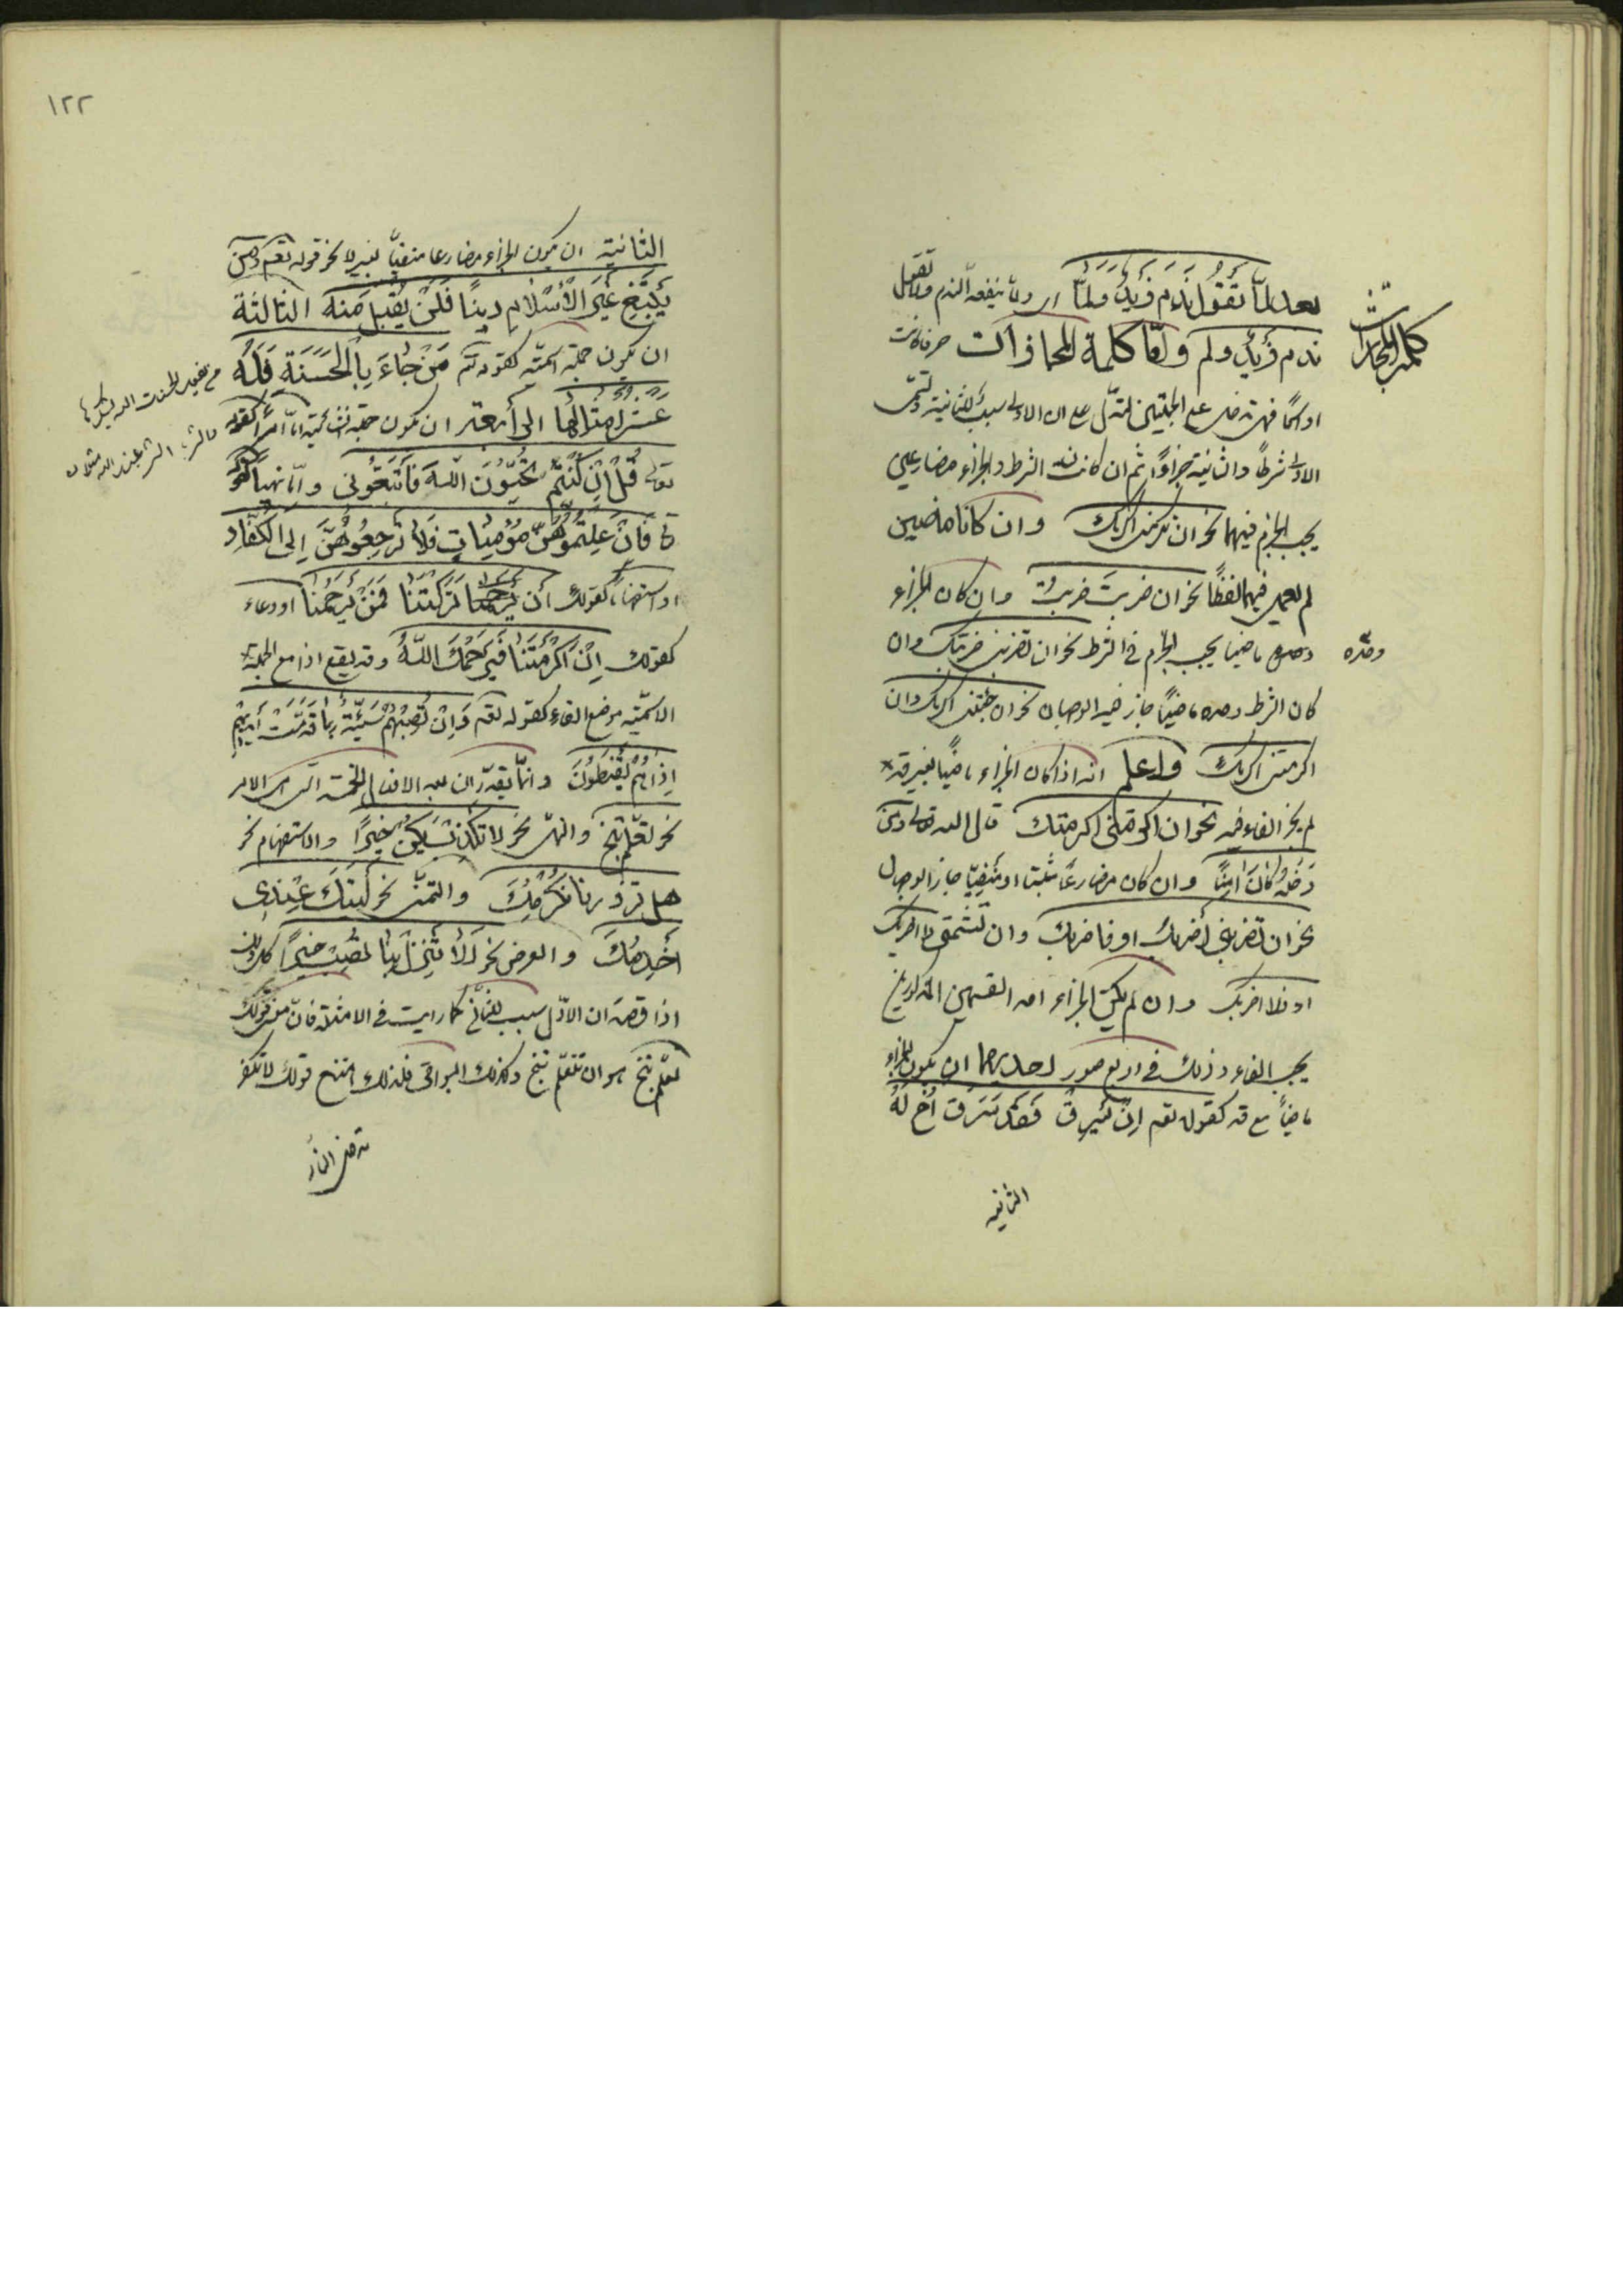 بعد لمّا تَقُولُ نَدِمَ زَيْدٌ وَلَمَّا اى ولمّا ينفعه الندم ولا تقول
ندم زيد ولم وامّا كلمة المجازات حرفا كانت
او اسما فهى تدخل على الجملتين لتدلّ على ان الاولى سبب للثانية وتسمّى
الاولى شرطاً والثانية جزاءً ثم ان كان الشرط والجزاء مضارعين
يجب الجزم فيهما نحو ان تكرمنى اكرمك وان كانا ماضيين
لم يعمل فيهما لفظاً نحو ان ضربتَ ضربتُ وان كان الجزاء
وحده ماضيا يجب الجزم فى الشرط نحو ان تضربنى ضربتك وان
كان الشرط وحده ماضياً جاز فيه الوجهان نحو ان جئتنى اكرمك وان
اكرمتنى اكرمك واعلم انه اذا كان الجزاء ماضياً بغير قد
لم يجز الفاء فيه نحو ان اكرمتنى اكرمتك قال الله تعالى ومن
دَخَلَهُ كَانَ امِنًا وان كان مضارعاً مثبتا او منفيّا جاز الوجهان
نحو ان تضربنى أضربك او فاضربك وان تشتمنى لا اضربك
او فلا اضربك وان لم يكن الجزاء احد القسمين المذكورين
يجب الفاء وذلك فى اربع صور احديهما ان يكون الجزاء
ماضياً مع قد كقوله تعم اِنْ يَسْرِقْ فَقَدْ سَرَقَ أَخٌ لَهُ
الثانية
كلمة المجازات
وحده
١٢٢
الثانية ان يكون الجزاء مضارعا منفيّا بغير لا نحو قوله تعم ومن
يَبْتَغِ غَيْرَ الْأِسْلَامِ دِينًا فَلَنْ يُقْبَلَ مِنْهُ الثالثة
ان يكون جملة اسميّة كقوله تعم مَنْ جَاءَ بِالْحَسَنَةِ فَلَهُ
عَشْرُ اَمْثَالِهَا الرابعة ان يكون جملة انشائية امّا امراً كقوله
تعالى قُلْ إِنْ كُنْتُمْ تُحِبُّونَ اللهَ فَاتَّبِعُونِى وامّا نهياً كقوله
تع فَاِنْ عَلِمْتُمُوهُنَّ مُؤْمِنَاتٍ فَلَا تَرْجِعُوهُنَّ اِلَى الْكُفَّارِ
او استفهاما كقولك ان تَرَكْتَنَا فَمَنْ يَرْحَمُنَا او دعاء
كقولك اِنْ اَكْرَمْتَنَا فَيَرْحَمُكَ اللهُ وقد يقع اذا مع الجملة
الاسميّة موضع الفاء كقوله تعم وَاِنْ تُصِبْهُمْ سَيِّئَةٌ بِمَا قَدَّمَتْ أَيْدِيهِمْ
اِذَا هُمْ يَقْنَطُونَ وانّما يقدّر ان بعد الافعال الخمسة التى هى الامر
نحو تعلّم تنج والنهى نحو لا تكذب يَكُنْ خيرًا والاستفهام نحو
هل تزورنا نُكْرِمْكَ والتمنّى نحو لَيْتَكَ عِنْدِى
أَخْدِمْكَ والعرض نحو اَلَا تَنْزِلُ بِنَا تُصِبْ خيرًا كل ذلك
اذا قصد ان الاوّل سبب للثانى كما رايت فى الامثلة فانّ معنى قولك
تعلّم تنج هو ان تتعلّم تنج وكذلك البواقى فلذلك امتنع قولك لا تكفر
تدخل النار